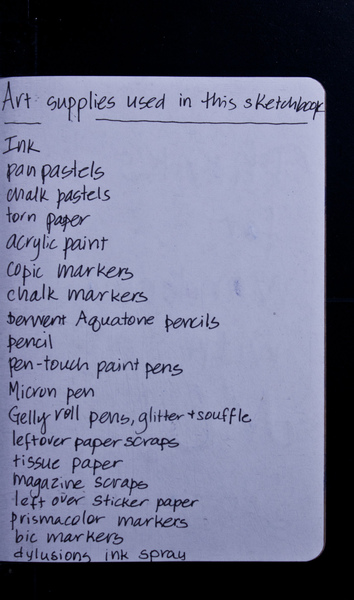 Art supplies used in this sketchbook
Ink
pan pastels
chalk pastels
torn paper
acrylic paint
Copic markers
chalk markers
Derwent Aquatone pencils
pencil
pen-touch paint pens
Micron pen
Gelly roll pens, glitter + souffle
leftover paper scraps
tissue paper
magazine scraps
left over sticker paper
prismacolor markers
bic markers
dylusions ink spray